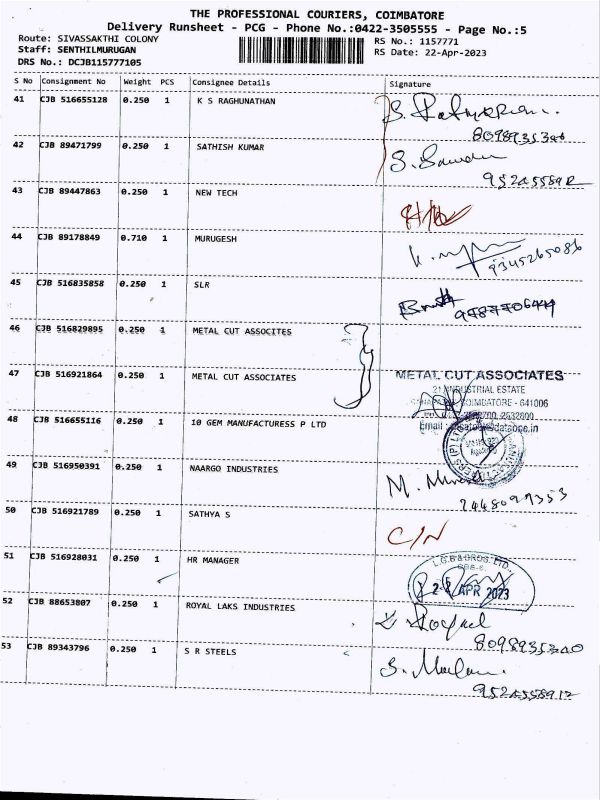 THE PROFESSIONAL COURIERS, COIMBATORE
Delivery Runsheet - PCG - Phone No.:0422-3505555 - Page No.:5
Route: SIVASSAKTHI COLONY RS No.: 1157771
Staff: SENTHILMURUGAN RS Date: 22-Apr-2023
DRS No.: DCJB115777105
S No Consignment No Weight PCS Consignee Details Signature
41 CJB 516655128 0.250 1 K S RAGHUNATHAN
8098935340
42 CJB 89471799 0.250 1 SATHISH KUMAR
43 CJB 89447863 0.250 1 NEW TECH
44 CJB 89178849 0.710 1 MURUGESH
9345265086
45 CJB 516835858 0.250 1 SLR
46 CJB 516829895 0.250 1 METAL CUT ASSOCITES
47 CJB 516921864 0.250 1 METAL CUT ASSOCIATES METAL CUT ASSOCIATES
21 INDUSTRIAL ESTATE
COIMBATORE - 641006
48 CJB 516655116 0.250 1 10 GEM MANUFACTURESS P LTD
49 CJB 516950391 0.250 1 NAARGO INDUSTRIES
50 CJB 516921789 0.250 1 SATHYA S C/N
51 CJB 516928031 0.250 1 HR MANAGER L.G.B & BROS. LTD.
APR 2023
52 CJB 88653807 0.250 1 ROYAL LAKS INDUSTRIES
8098935340
53 CJB 89343796 0.250 1 S R STEELS